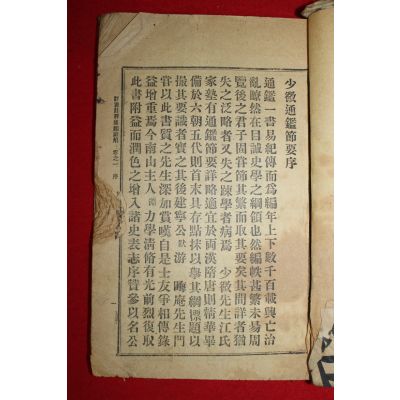 少微通鑑節要序
通鑑一書易紀傳而爲編年上下數千百載興亡治
亂瞭然在目誠史學之綱領也然編帙甚繁未易周
覽後之君子固嘗節其繁而取其要矣其間詳者猶
失之泛略者又失之踈學者病焉 少微先生江氏
家塾有通鑑節要詳略適宜於兩漢隋唐則精華畢
備於六朝五代則首末具存點抹以擧其綱標題以
撮其要識者寶之其後建寧公默游 晦庵先生門
嘗以此書質之先生深加賞嘆自是士友爭相傳錄
益增重焉今南山主人淵力學淸修有光前烈復取
此書附益而潤色之增入諸史表志序贊參以名公